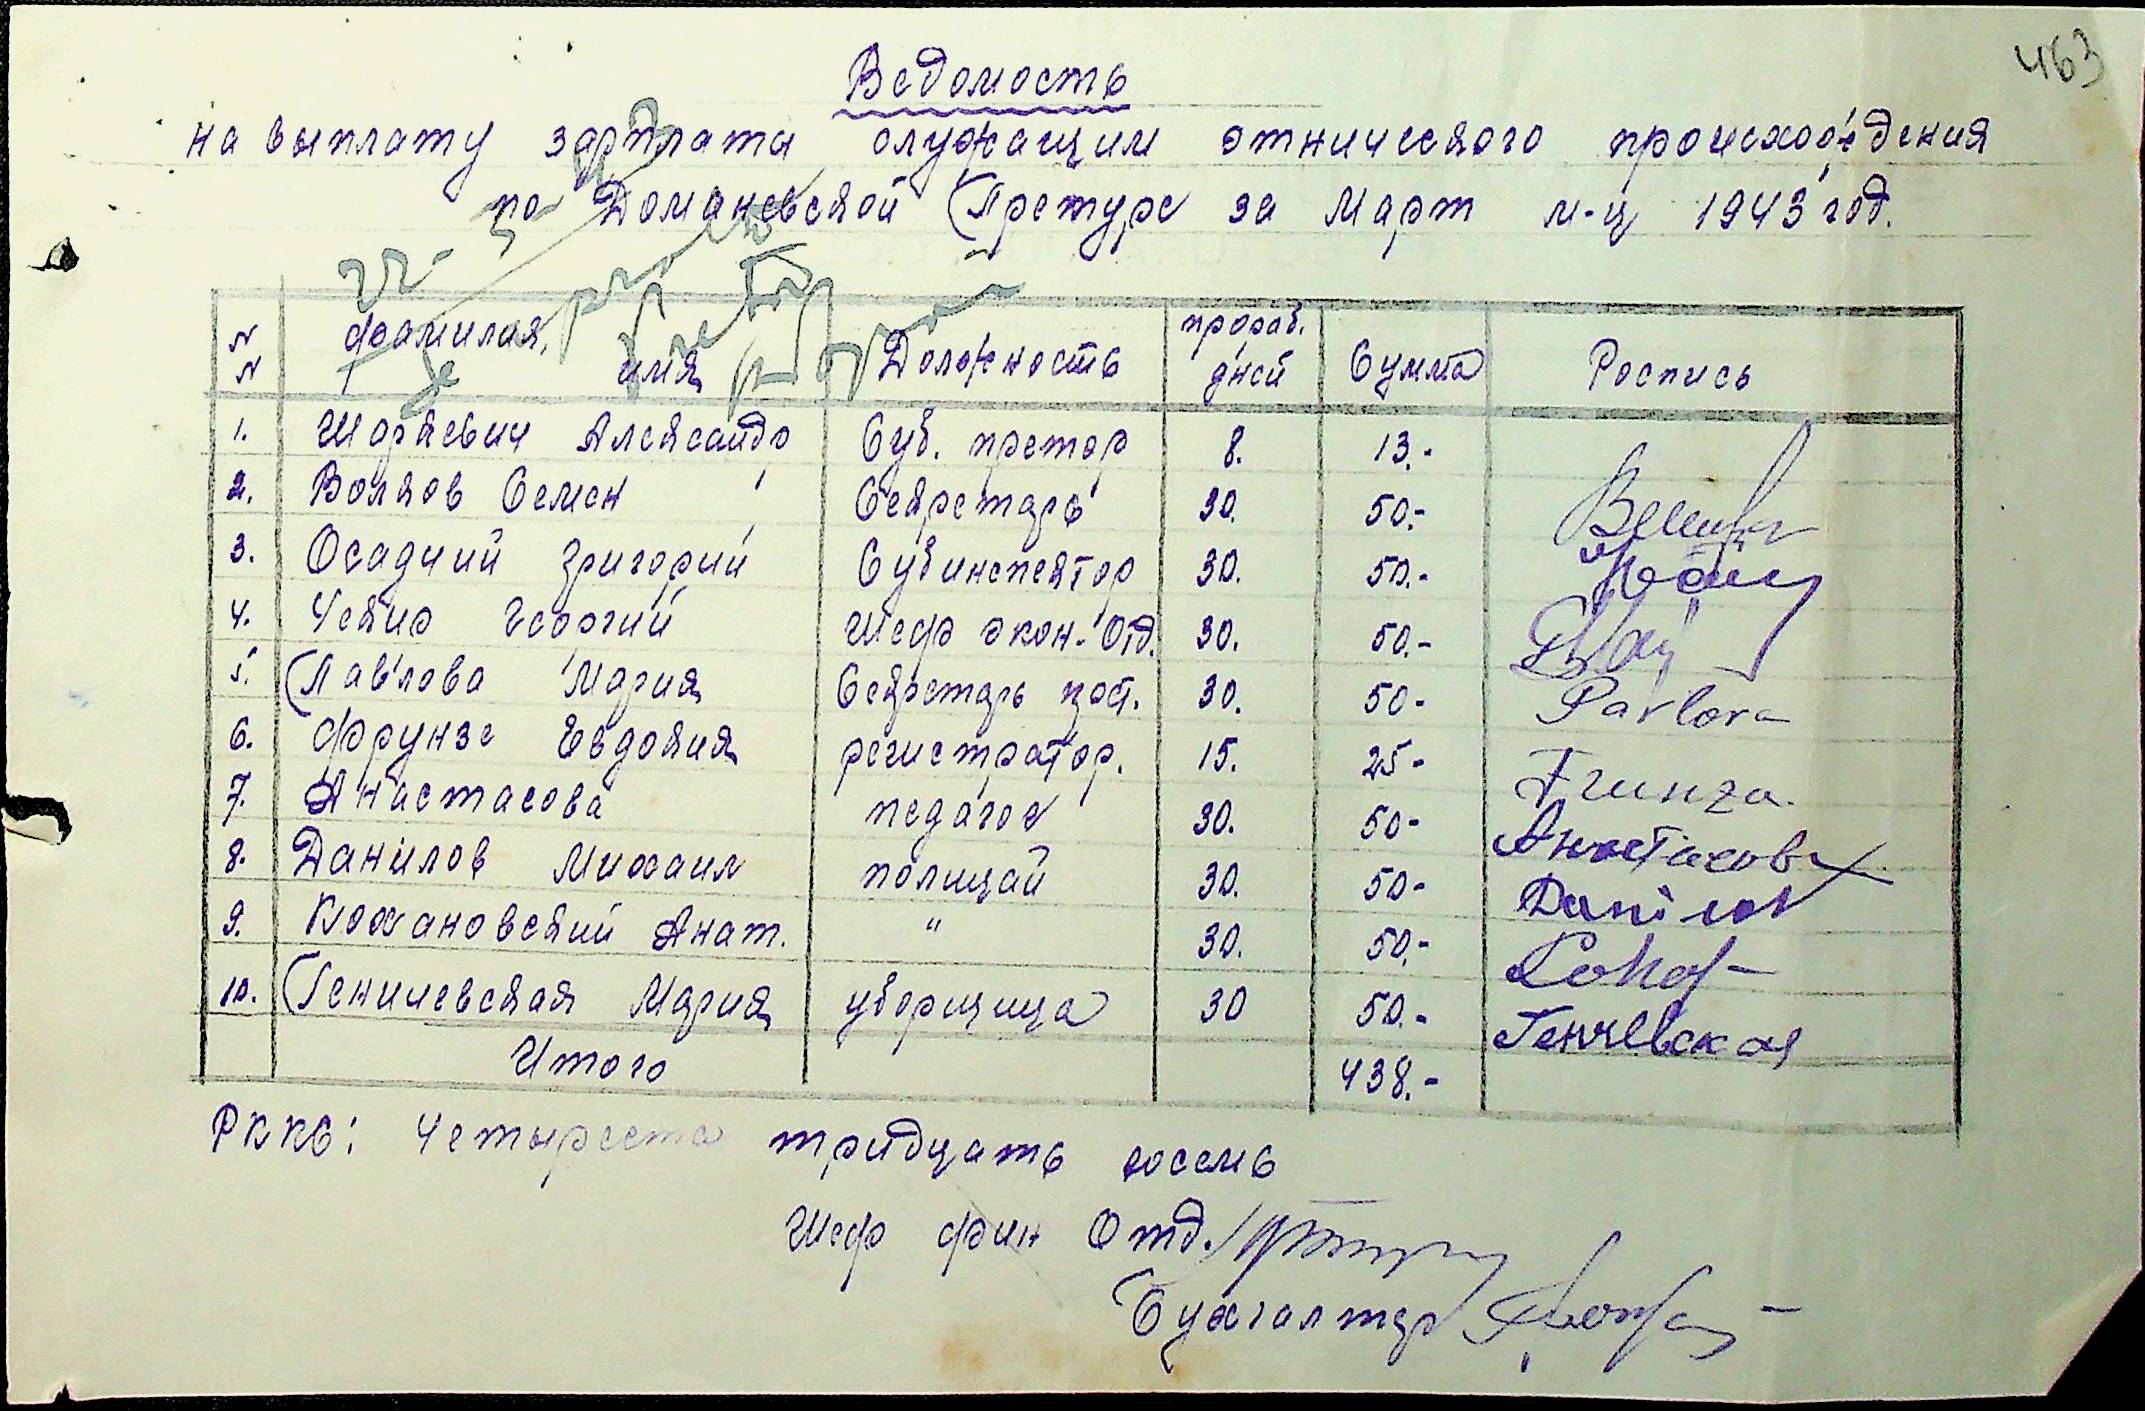 463
Ведомость
на выплату зарплата служащим этнического происхождения
по Доманевской Претуре за Март м-ц 1943 год.
N N Фамилия, имя Должность прораб. дней Сумма Роспись
1. Шоркевич Александр Суб. претор 8. 13.-
2. Волков Семен Секретарь 30. 50.-
3. Осадчий Григорий Субинспектор 30. 50.-
4. Чекир Георгий Шеф экон. Отд. 30. 50.-
5. Павлова Мария Секретарь 30. 50- Pavlova
6. Фрунзе Евдокия регистратор. 15. 25- Frunza.
7. Анастасова педагог 30. 50- Анастасова
8. Данилов Михаил полицай 30. 50- Danilov
9. Кохановский Анат. " 30. 50.-
10. Геничевская Мария уборщица 30 50.- Генчевская
Итого 438.-
РККС: Четыреста тридцать восемь
Шеф фин Отд.
Бухгалтер